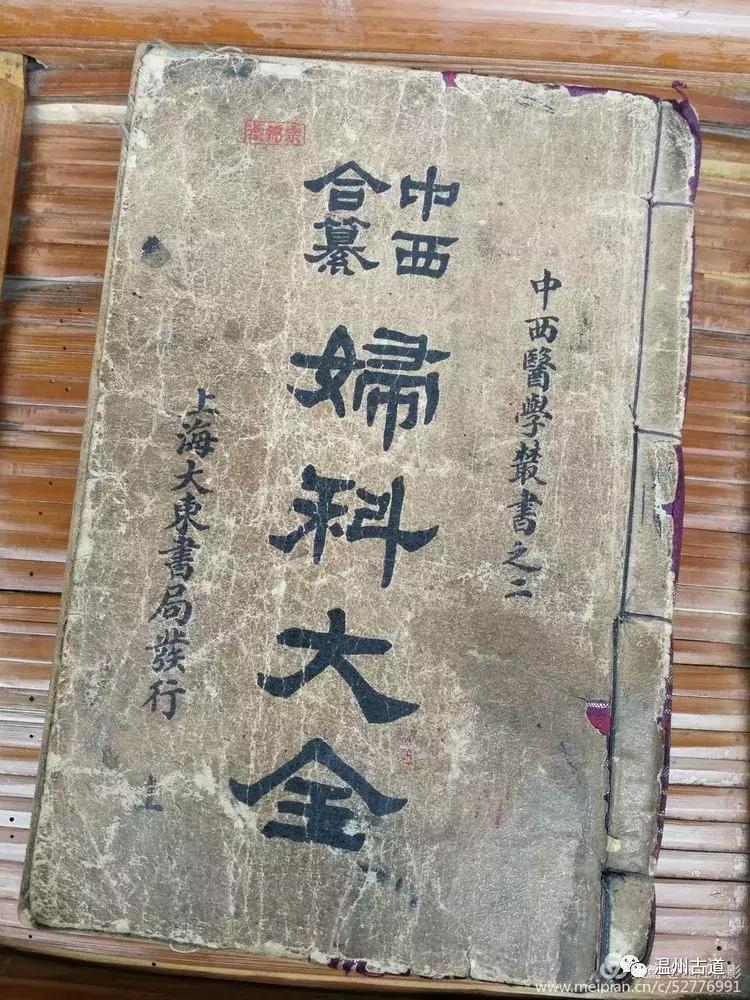 中西醫學叢書之二
中西
合纂
婦科大全
上海大東書局發行
温州古道
www.meipian.cn/c/52776991